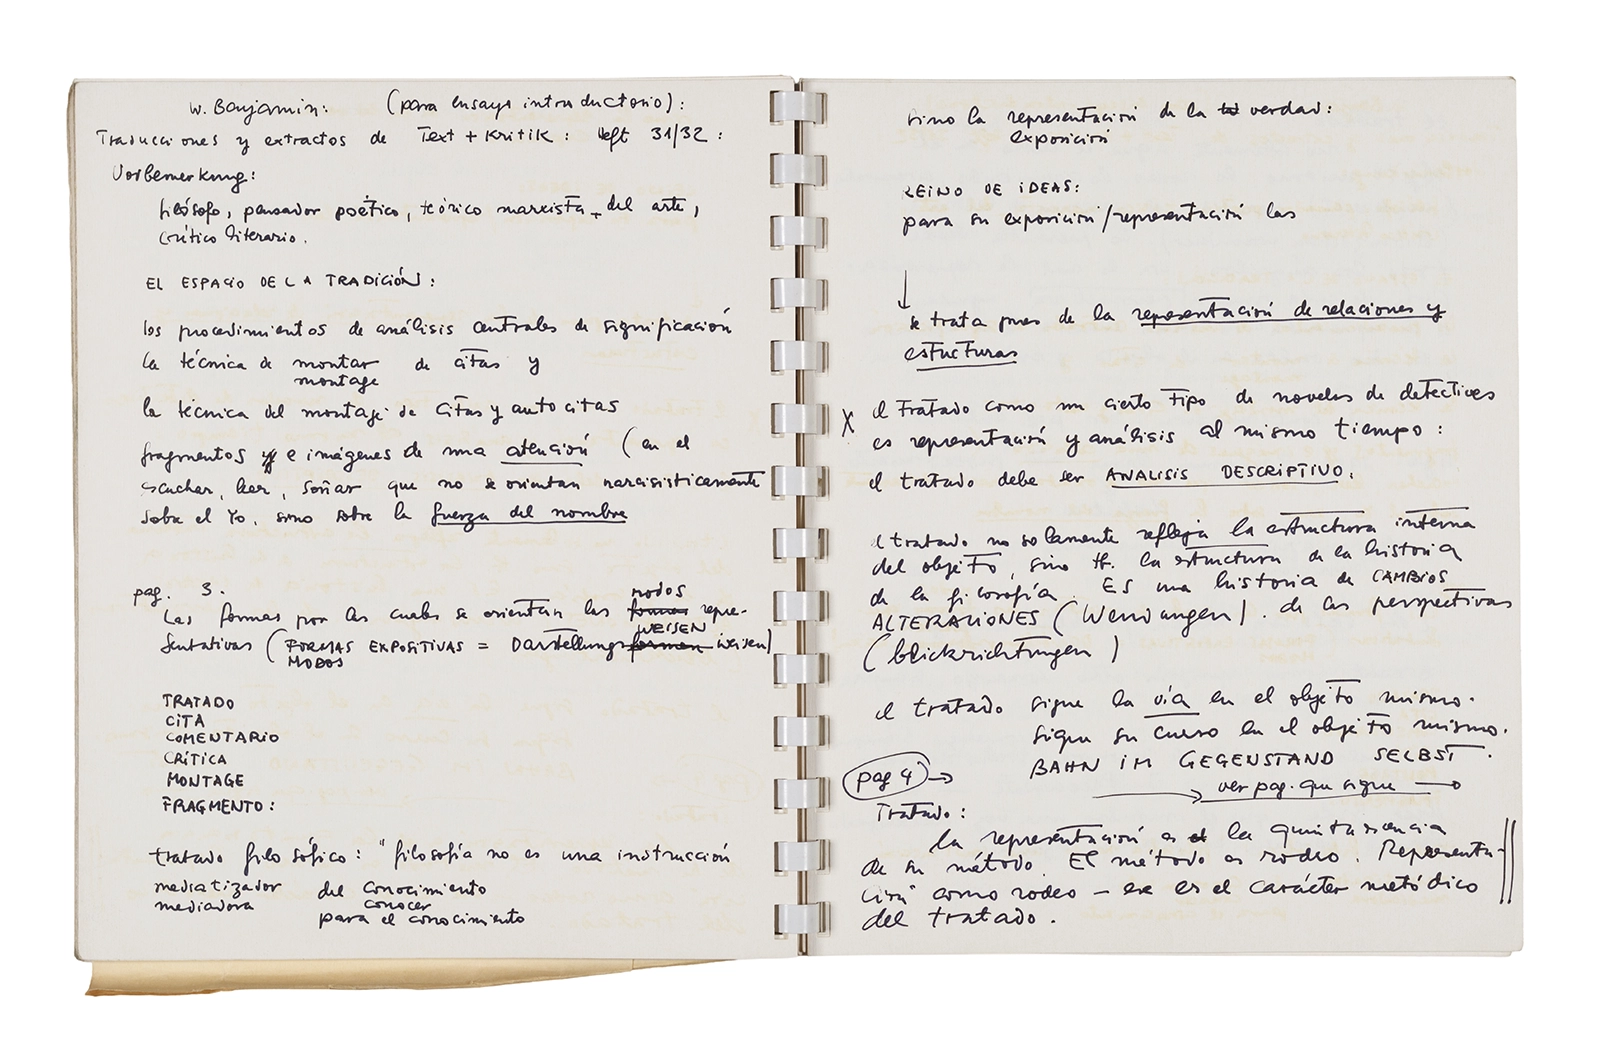 W. Benjamin: (para ensayo introductorio):
Traducciones y extractos de Text + Kritik: Heft 31/32:
Vorbemerkung:
filósofo, pensador poético, teórico marxista del arte,
crítico literario.
EL ESPACIO DE LA TRADICIÓN:
los procedimientos de análisis centrales de significación
la técnica de montar de citas y
montage
la técnica del montaje de citas y autocitas
fragmentos e imágenes de una atención (en el
escuchar, leer, soñar que no se orientan narcisisticamente
sobre el Yo, sino sobre la fuerza del nombre
pag. 3.
MODOS
Las formas por las cuales se orientan las formas repre-
WEISEN
sentativas (FORMAS EXPOSITIVAS = Darstellungsformen weisen)
MODOS
TRATADO
CITA
COMENTARIO
CRÍTICA
MONTAGE
FRAGMENTO:
tratado filosófico: "filosofía no es una instrucción
mediatizador del conocimiento
mediadora conocer
para el conocimiento
sino la representación de la verdad:
exposición
REINO DE IDEAS:
para su exposición/representación las
se trata pues de la representación de relaciones y
estucturas
X el tratado como un cierto tipo de novelas de detectives
es representación y análisis al mismo tiempo:
el tratado debe ser ANALISIS DESCRIPTIVO.
el tratado no solamente refleja la estructura interna
del objeto, sino tb. la estructura de la historia
de la filosofía. ES una historia de CAMBIOS
ALTERACIONES (Wendungen). de las perspectivas
(blickrichtungen)
el tratado sigue la vía en el objeto mismo.
sigue su curso en el objeto mismo.
BAHN IM GEGENSTAND SELBST.
pag 4 →
→ ver pag. que sigue →
Tratado:
la representación es el la quintaesencia
de su método. El método es rodeo. Representa-
ción como rodeo – ese es el carácter metódico
del tratado.